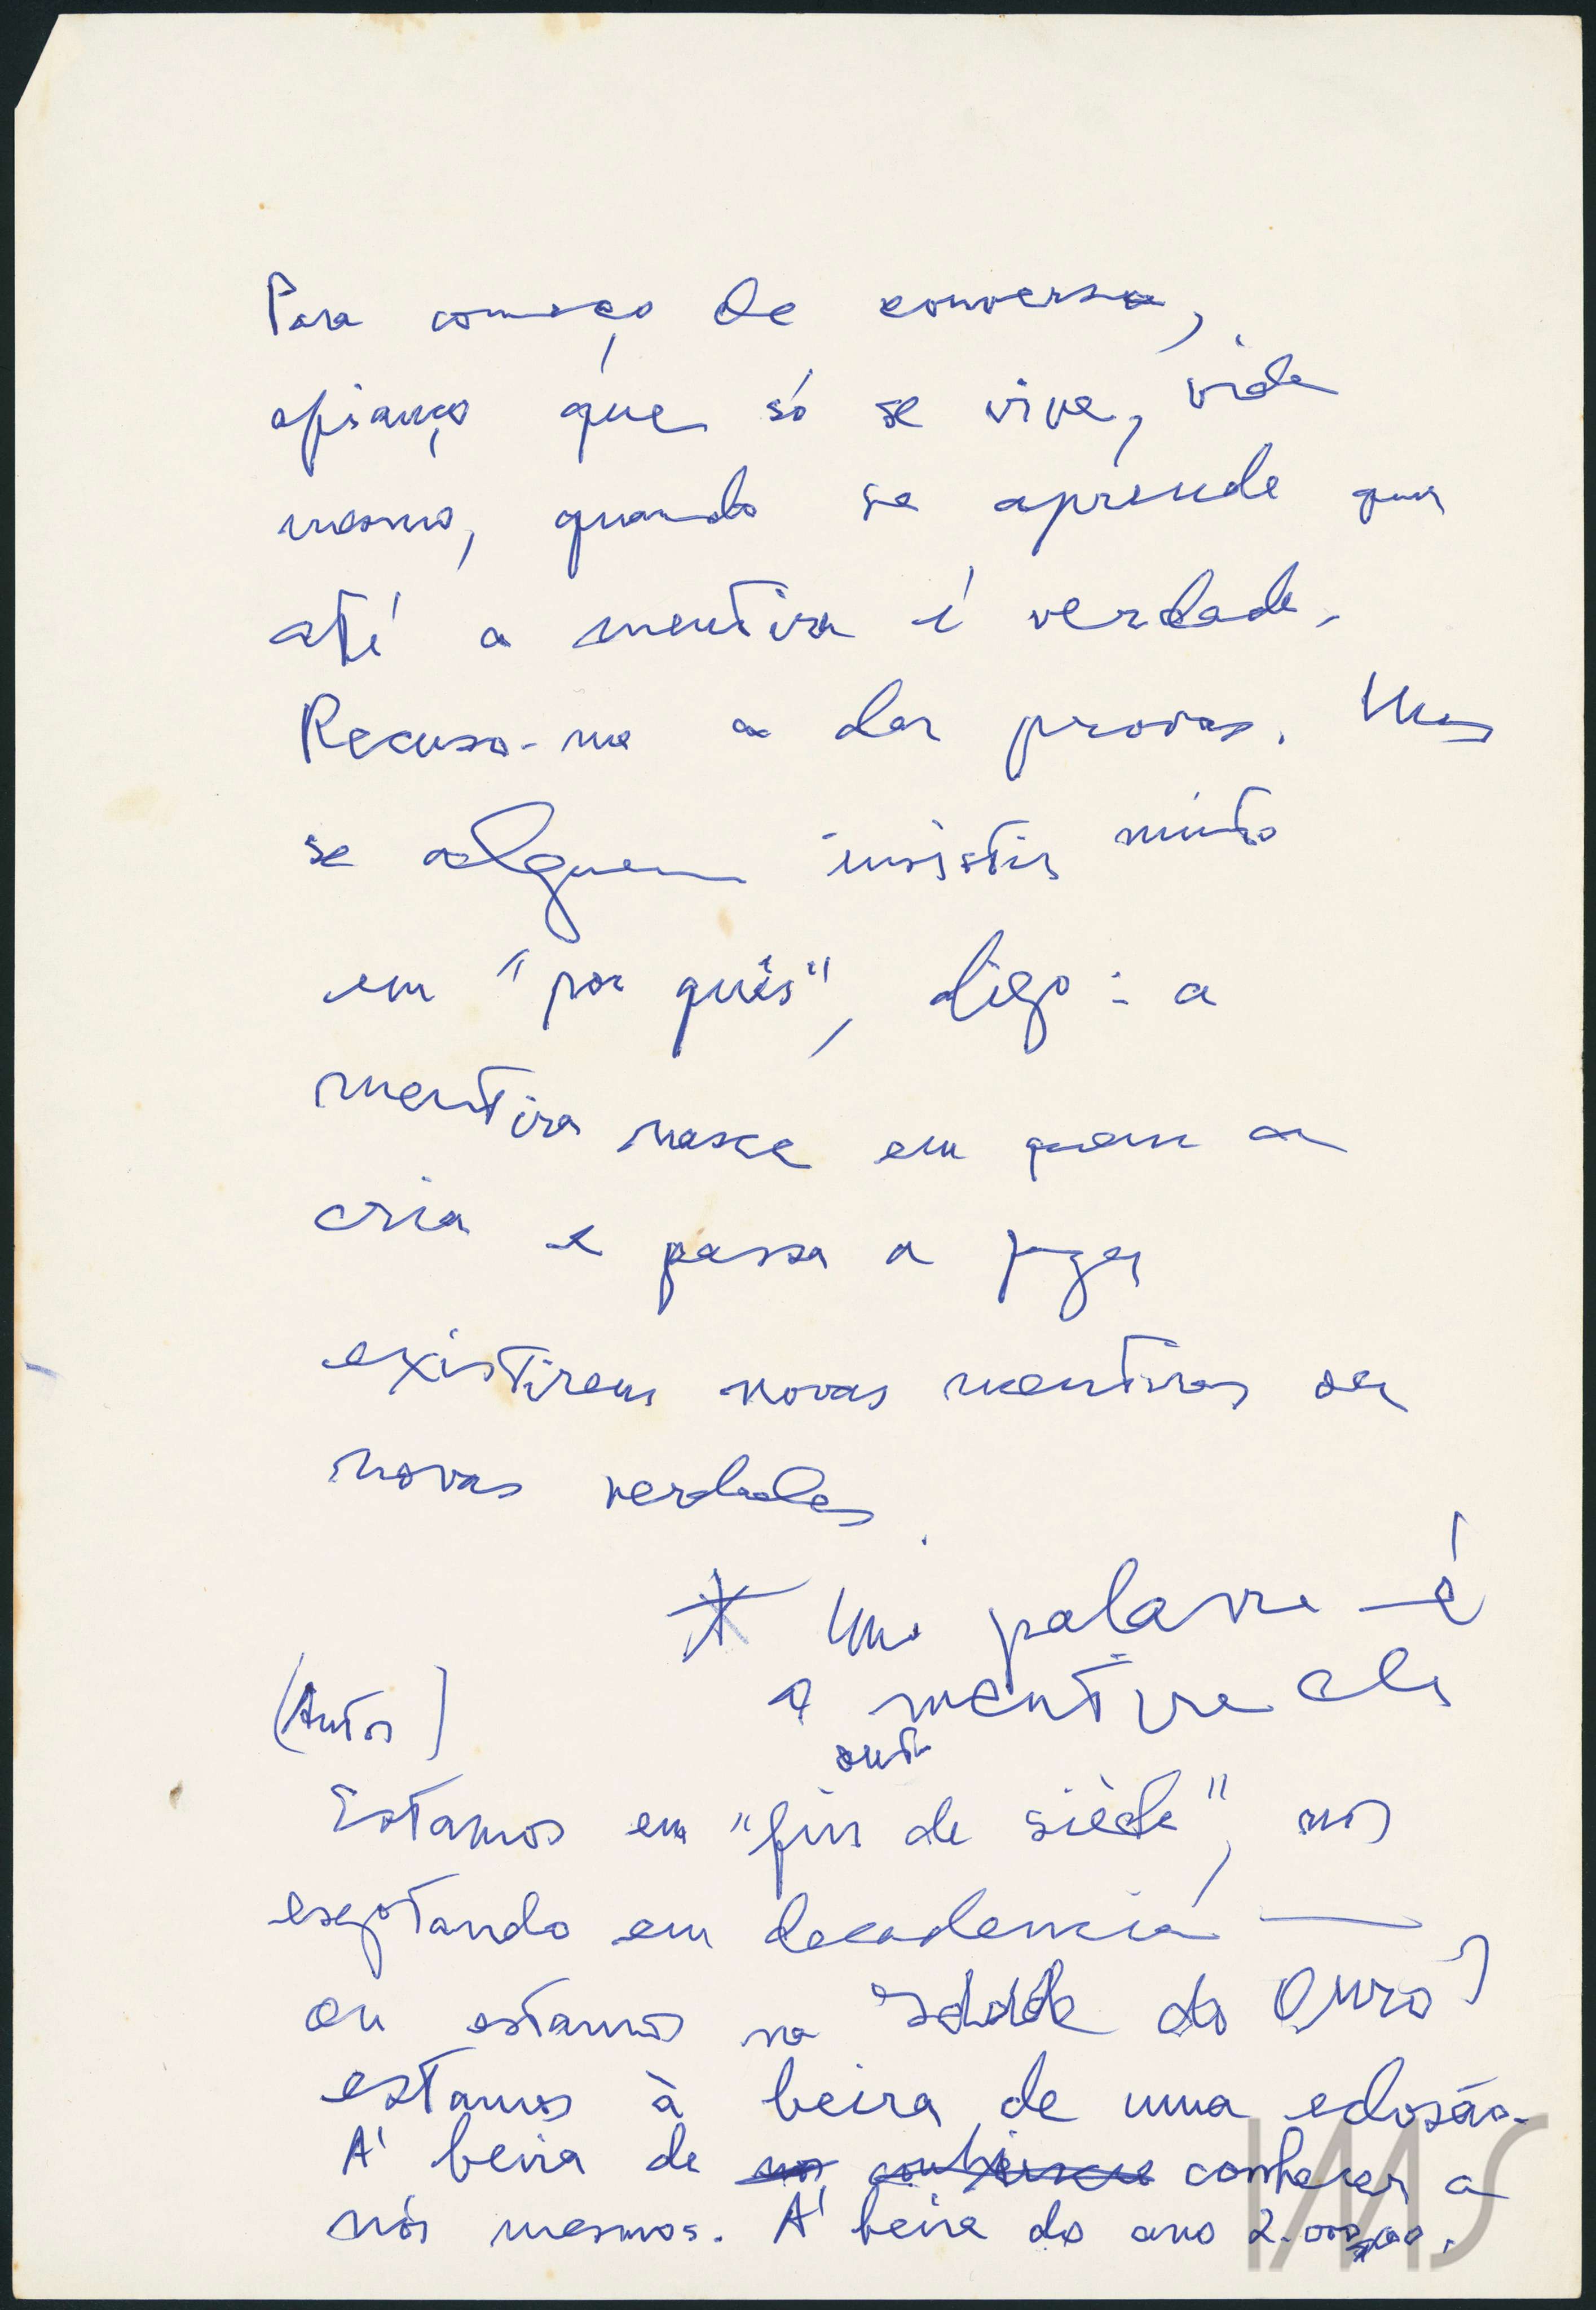 Para começo de conversa,
afianço que só se vive, vida
mesmo, quando se aprende que
até a mentira é verdade.
Recuso-me a dar provas. Mas
se alguem insistir muito
em "por quês", digo: a
mentira nasce em quem a
cria e passa a fazer
existirem novas mentiras ou
novas verdades.
* Uma palavra é
a mentira de
outra
(Autor)
Estamos em "fin de siècle", nos
esgotando em decadencia —
ou estamos na Idade do Ouro?
estamos à beira de uma eclosão.
A' beira de nos conhecer a
nós mesmos. A' beira do ano 2.000.
IMS